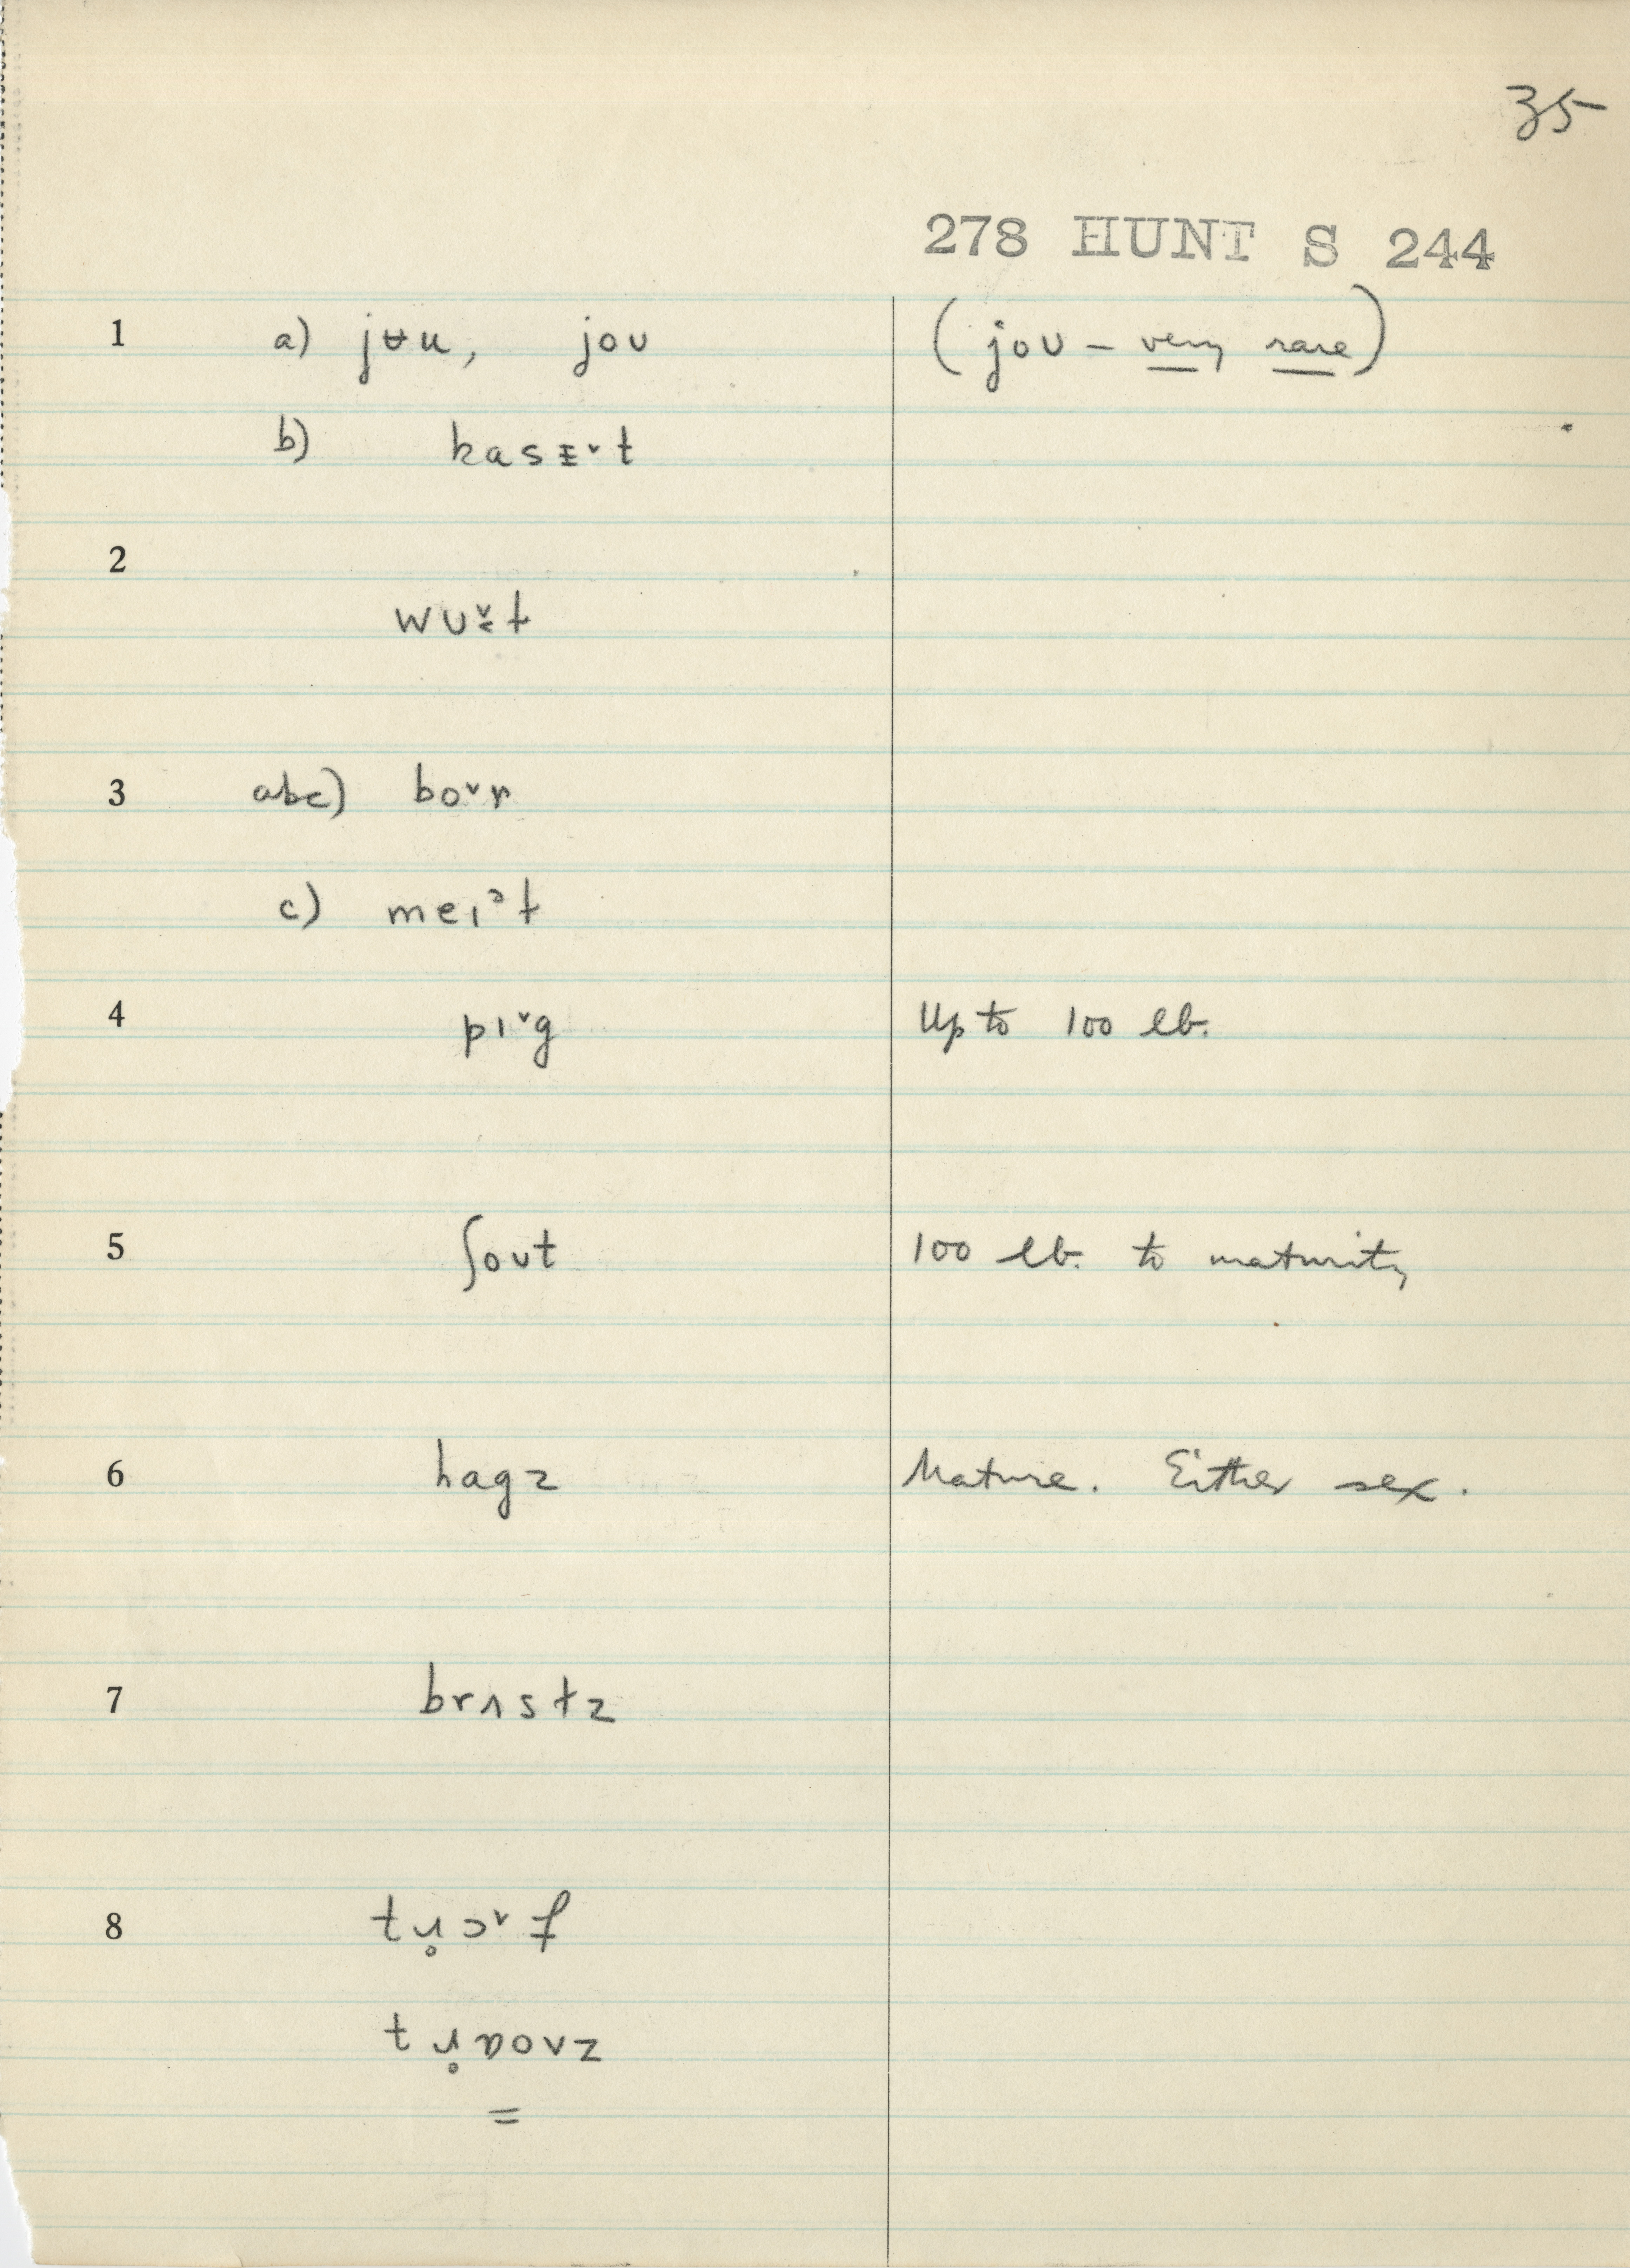 35
278 HUNT S 244
1 a) jʉu, jou (jou – very rare)
b) kasɛ̵ˇt
2
wuɛ̌t
3 abc) boˇr
c) meɪᵊt
4 pɪˇg Up to 100 lb.
5 ʃout 100 lb. to maturity
6 hagz Mature. Either sex.
7 brʌstz
8
=